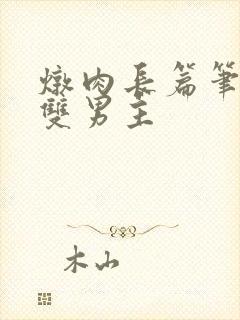 燉肉長篇筆
雙男主
木山